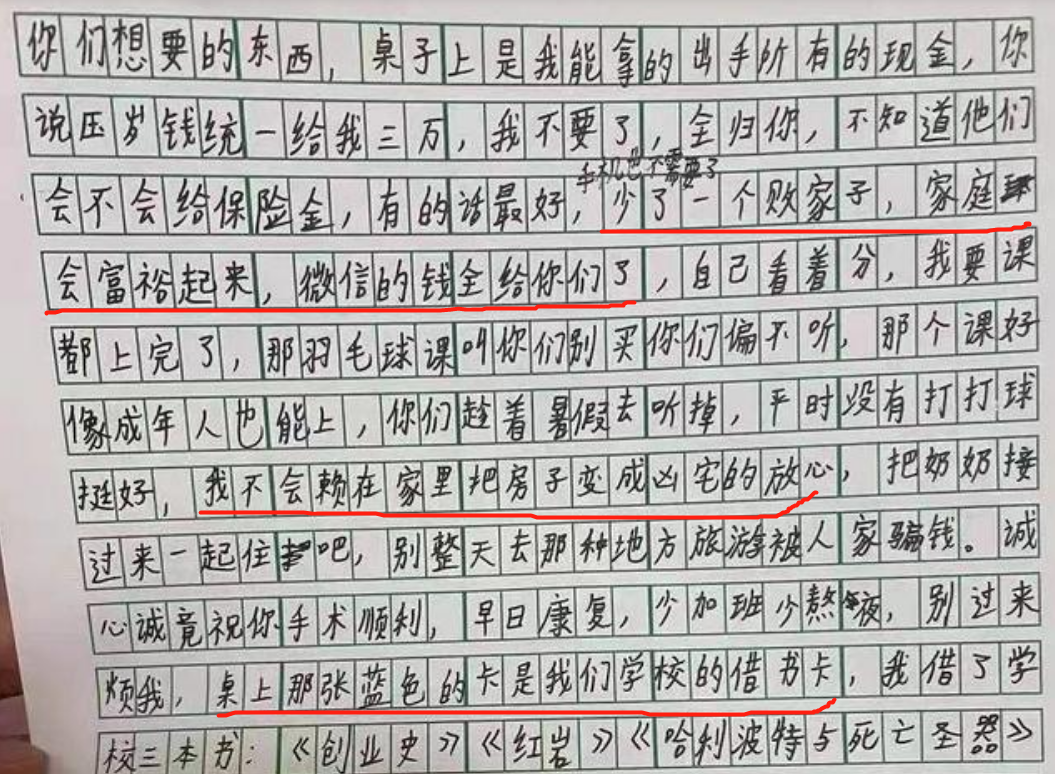 你们想要的东西，桌子上是我能拿的出手所有的现金，你
说压岁钱统一给我三万，我不要了，全归你，不知道他们
手机也不需要了
会不会给保险金，有的话最好，少了一个败家子，家庭
会富裕起来，微信的钱全给你们了，自己看着分，我要课
都上完了，那羽毛球课叫你们别买你们偏不听，那个课好
像成年人也能上，你们趁着暑假去听掉，平时没有打打球
挺好，我不会赖在家里把房子变成凶宅的放心，把奶奶接
过来一起住吧，别整天去那种地方旅游被人家骗钱。诚
心诚竟祝你手术顺利，早日康复，少加班少熬夜，别过来
烦我，桌上那张蓝色的卡是我们学校的借书卡，我借了学
校三本书：《创业史》《红岩》《哈利波特与死亡圣器》